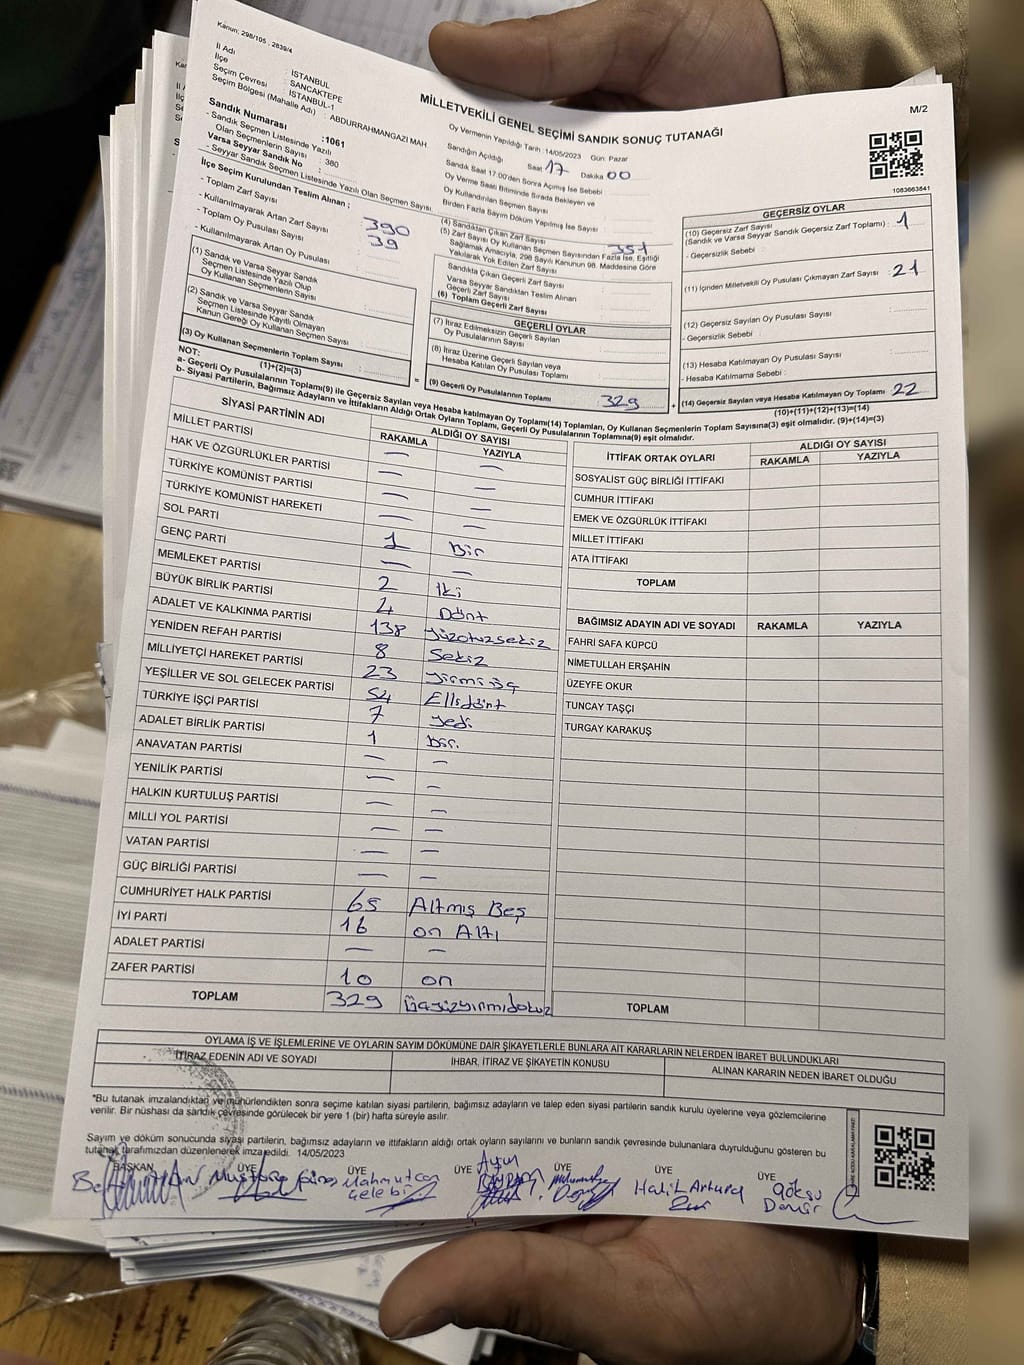 Kanun: 298/105 , 2839/4
İl Adı : İSTANBUL
İlçe : SANCAKTEPE
Seçim Çevresi : İSTANBUL-1
Seçim Bölgesi (Mahalle Adı) : ABDURRAHMANGAZI MAH.
MİLLETVEKİLİ GENEL SEÇİMİ SANDIK SONUÇ TUTANAĞI
M/2
1083663841
Sandık Numarası :1061
- Sandık Seçmen Listesinde Yazılı
Olan Seçmenlerin Sayısı : 380
Varsa Seyyar Sandık No :
- Seyyar Sandık Seçmen Listesinde Yazılı Olan Seçmen Sayısı
Oy Vermenin Yapıldığı Tarih :14/05/2023 Gün: Pazar
Sandığın Açıldığı Saat 17 Dakika 00
Sandık Saat 17:00'den Sonra Açılmış İse Sebebi
Oy Verme Saati Bitiminde Sırada Bekleyen ve
Oy Kullandırılan Seçmen Sayısı
Birden Fazla Sayım Döküm Yapılmış İse Sayısı :
İlçe Seçim Kurulundan Teslim Alınan ;
- Toplam Zarf Sayısı : 390
- Kullanılmayarak Artan Zarf Sayısı 39
- Toplam Oy Pusulası Sayısı
- Kullanılmayarak Artan Oy Pusulası
(1) Sandık ve Varsa Seyyar Sandık
Seçmen Listesinde Yazılı Olup
Oy Kullanan Seçmenlerin Sayısı
(2) Sandık ve Varsa Seyyar Sandık
Seçmen Listesinde Kayıtlı Olmayan
Kanun Gereği Oy Kullanan Seçmen Sayısı
(3) Oy Kullanan Seçmenlerin Toplam Sayısı
(1)+(2)=(3)
(4) Sandıktan Çıkan Zarf Sayısı 351
(5) Zarf Sayısı Oy Kullanan Seçmen Sayısından Fazla İse, Eşitliği
Sağlamak Amacıyla, 298 Sayılı Kanunun 98. Maddesine Göre
Yakılarak Yok Edilen Zarf Sayısı
Sandıkta Çıkan Geçerli Zarf Sayısı
Varsa Seyyar Sandıktan Teslim Alınan
Geçerli Zarf Sayısı
(6) Toplam Geçerli Zarf Sayısı
GEÇERLİ OYLAR
(7) İtiraz Edilmeksizin Geçerli Sayılan
Oy Pusulalarının Sayısı
(8) İtiraz Üzerine Geçerli Sayılan veya
Hesaba Katılan Oy Pusulası Toplamı
= (9) Geçerli Oy Pusulalarının Toplamı 329 +
GEÇERSİZ OYLAR
(10) Geçersiz Zarf Sayısı
(Sandık ve Varsa Seyyar Sandık Geçersiz Zarf Toplamı) : 1
- Geçersizlik Sebebi
(11) İçinden Milletvekili Oy Pusulası Çıkmayan Zarf Sayısı : 21
(12) Geçersiz Sayılan Oy Pusulası Sayısı
- Geçersizlik Sebebi :
(13) Hesaba Katılmayan Oy Pusulası Sayısı
- Hesaba Katılmama Sebebi :
(14) Geçersiz Sayılan veya Hesaba Katılmayan Oy Toplamı 22
(10)+(11)+(12)+(13)=(14)
NOT:
a- Geçerli Oy Pusulalarının Toplamı(9) ile Geçersiz Sayılan veya Hesaba katılmayan Oy Toplamı(14) Toplamları, Oy Kullanan Seçmenlerin Toplam Sayısına(3) eşit olmalıdır. (9)+(14)=(3)
b- Siyasi Partilerin, Bağımsız Adayların ve İttifakların Aldığı Ortak Oyların Toplamı, Geçerli Oy Pusulalarının Toplamına(9) eşit olmalıdır.
SİYASİ PARTİNİN ADI ALDIĞI OY SAYISI
RAKAMLA YAZIYLA
MİLLET PARTİSİ — —
HAK VE ÖZGÜRLÜKLER PARTİSİ — —
TÜRKİYE KOMÜNİST PARTİSİ — —
TÜRKİYE KOMÜNİST HAREKETİ — —
SOL PARTİ 1 Bir
GENÇ PARTİ — —
MEMLEKET PARTİSİ 2 İki
BÜYÜK BİRLİK PARTİSİ 4 Dört
ADALET VE KALKINMA PARTİSİ 138 Yüzotuzsekiz
YENİDEN REFAH PARTİSİ 8 Sekiz
MİLLİYETÇİ HAREKET PARTİSİ 23 Yirmiüç
YEŞİLLER VE SOL GELECEK PARTİSİ 54 Ellidört
TÜRKİYE İŞÇİ PARTİSİ 7 Yedi
ADALET BİRLİK PARTİSİ 1 bir.
ANAVATAN PARTİSİ — —
YENİLİK PARTİSİ — —
HALKIN KURTULUŞ PARTİSİ — —
MİLLİ YOL PARTİSİ — —
VATAN PARTİSİ — —
GÜÇ BİRLİĞİ PARTİSİ — —
CUMHURİYET HALK PARTİSİ 65 Altmış Beş
İYİ PARTİ 16 on Altı
ADALET PARTİSİ — —
ZAFER PARTİSİ 10 on
TOPLAM 329 Üçyüzyirmidokuz
İTTİFAK ORTAK OYLARI ALDIĞI OY SAYISI
RAKAMLA YAZIYLA
SOSYALİST GÜÇ BİRLİĞİ İTTİFAKI
CUMHUR İTTİFAKI
EMEK VE ÖZGÜRLÜK İTTİFAKI
MİLLET İTTİFAKI
ATA İTTİFAKI
TOPLAM
BAĞIMSIZ ADAYIN ADI VE SOYADI RAKAMLA YAZIYLA
FAHRİ SAFA KÜPCÜ
NİMETULLAH ERŞAHİN
ÜZEYFE OKUR
TUNCAY TAŞÇI
TURGAY KARAKUŞ
TOPLAM
OYLAMA İŞ VE İŞLEMLERİNE VE OYLARIN SAYIM DÖKÜMÜNE DAİR ŞİKAYETLERLE BUNLARA AİT KARARLARIN NELERDEN İBARET BULUNDUKLARI
İTİRAZ EDENİN ADI VE SOYADI İHBAR, İTİRAZ VE ŞİKAYETİN KONUSU ALINAN KARARIN NEDEN İBARET OLDUĞU
*Bu tutanak imzalandıktan ve mühürlendikten sonra seçime katılan siyasi partilerin, bağımsız adayların ve talep eden siyasi partilerin sandık kurulu üyelerine veya gözlemcilerine
verilir. Bir nüshası da sandık çevresinde görülecek bir yere 1 (bir) hafta süreyle asılır.
Sayım ve döküm sonucunda siyasi partilerin, bağımsız adayların ve ittifakların aldığı ortak oyların sayılarını ve bunların sandık çevresinde bulunanlara duyrulduğunu gösteren bu
tutanak tarafımızdan düzenlenerek imza edildi. 14/05/2023
BAŞKAN ÜYE ÜYE ÜYE ÜYE ÜYE ÜYE
Mahmutcan Çelebi
Göksu Demir